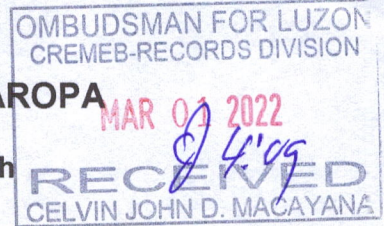 OMBUDSMAN FOR LUZON
CREMEB-RECORDS DIVISION
AROPA
MAR 01 2022
4:09
h
RECEIVED
CELVIN JOHN D. MACAYANA